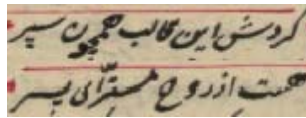 کردش این قالب همچون سپر
هست از روح مستر ای پسر